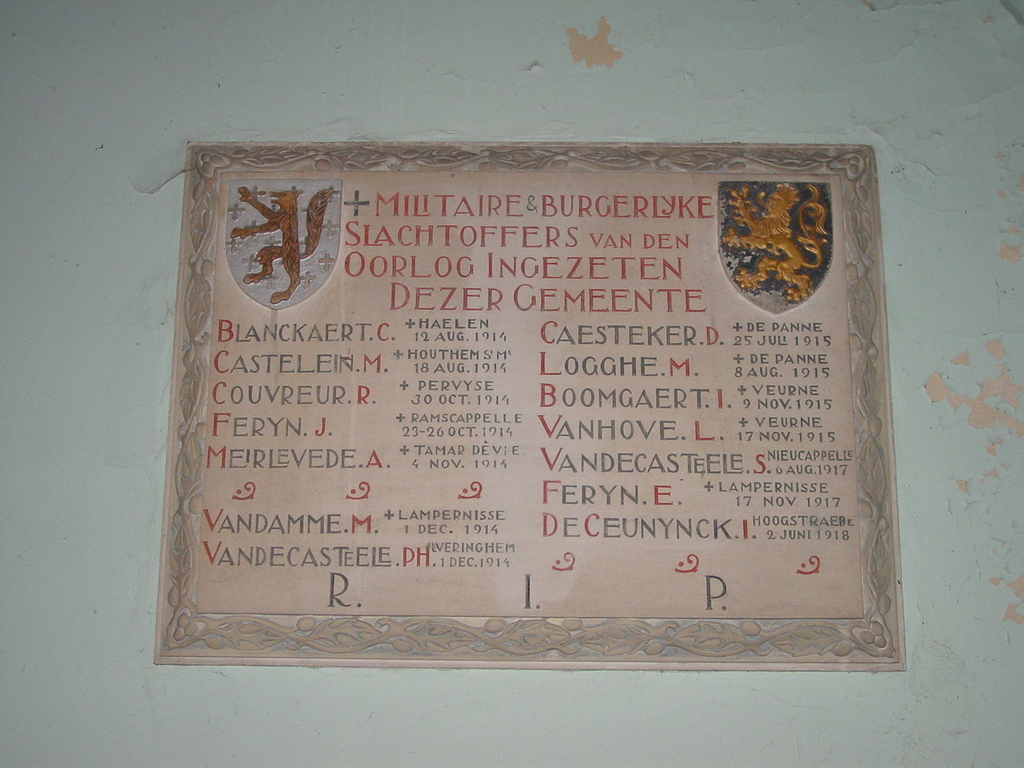 + MILITAIRE & BURGERLYKE
SLACHTOFFERS VAN DEN
OORLOG INGEZETEN
DEZER GEMEENTE
BLANCKAERT. C. + HAELEN
12 AUG. 1914
CASTELEIN. M. + HOUTHEM ST M
18 AUG. 1914
COUVREUR. R. + PERVYSE
30 OCT. 1914
FERYN. J. + RAMSCAPPELLE
23-26 OCT. 1914
MEIRLEVEDE. A. + TAMAR DÈVIE
4 NOV. 1914
VANDAMME. M. + LAMPERNISSE
1 DEC. 1914
VANDECASTEELE. PH. ALVERINGHEM
1 DEC. 1914
CAESTEKER. D. + DE PANNE
25 JULI 1915
LOGGHE. M. + DE PANNE
8 AUG. 1915
BOOMGAERT. I. + VEURNE
9 NOV. 1915
VANHOVE. L. + VEURNE
17 NOV. 1915
VANDECASTEELE. S. NIEUCAPPELLE
6 AUG. 1917
FERYN. E. + LAMPERNISSE
17 NOV 1917
DE CEUNYNCK. I. HOOGSTRAEDE
2 JUNI 1918
R. I. P.